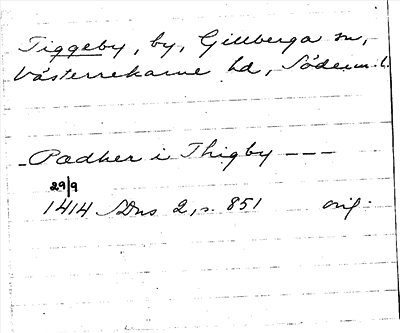 Tiggeby, by, Gillberga sn,
Västerrekarne hd, Söderm. l.
- Padher i Thigby ---
29/9
1414 SDns 2, s. 851 orig.